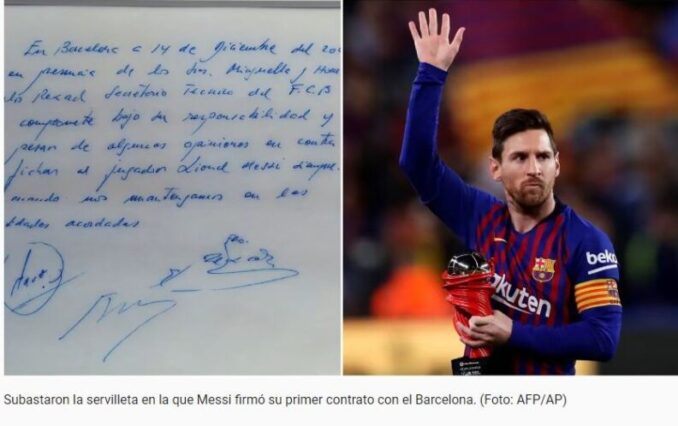 En Barcelona a 14 de Diciembre del 20
en presencia de los Srs. Minguella y
Rexach Secretario Técnico del F.C.B
compromete bajo su responsabilidad y
pesar de algunas opiniones en contra
fichar al jugador Lionel Messi siempre
cuando nos mantengamos en las
acordadas
beko
Rakuten
Subastaron la servilleta en la que Messi firmó su primer contrato con el Barcelona. (Foto: AFP/AP)